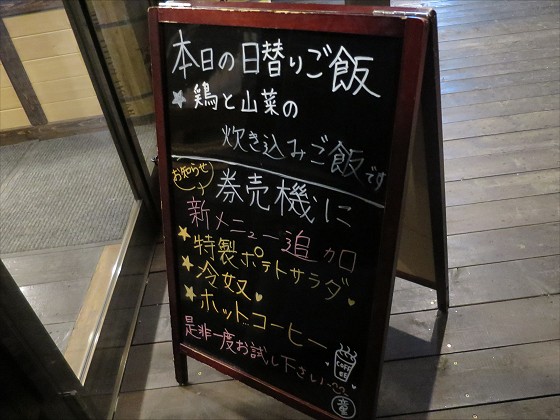 本日の日替りご飯
★鶏と山菜の
炊き込みご飯です
お知らせ
券売機に
新メニュー追加
★特製ポテトサラダ♥
★冷奴♥
★ホットコーヒー
是非一度お試し下さい♥
COFFEE